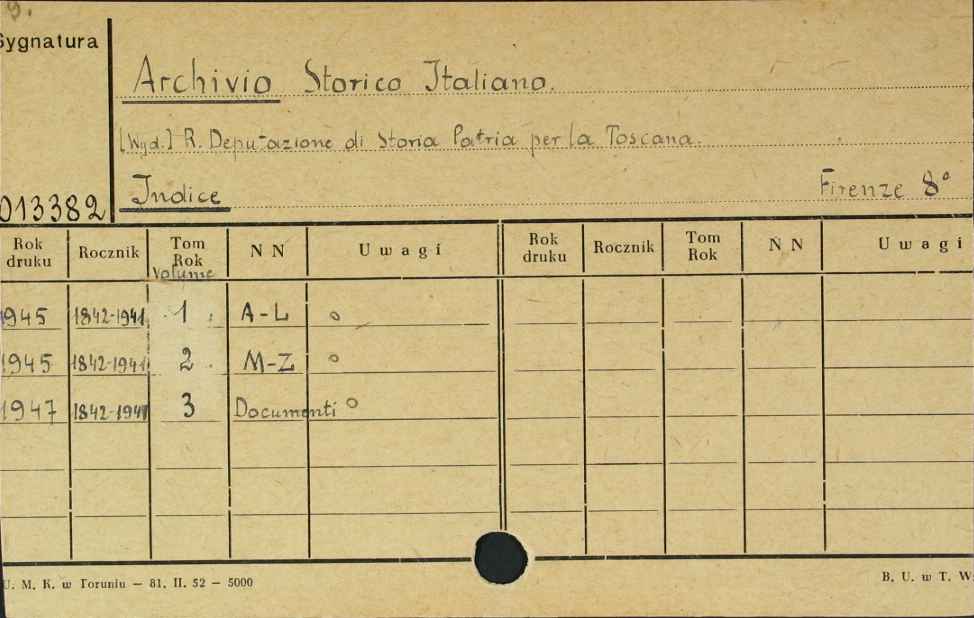 9.
Sygnatura
Archivio Storico Italiano.
[Wyd.] R. Deputazione di Storia Patria per la Toscana.
Indice Firenze 8°
013382
Rok druku Rocznik Tom Rok Volume N N Uwagi Rok druku Rocznik Tom Rok N N Uwagi
1945 1842-1941 1 A-L o
1945 1842-1941 2 M-Z o
1947 1842-1941 3 Documenti o
U. M. K. w Toruniu — 81. II. 52 — 5000 B. U. w T. W